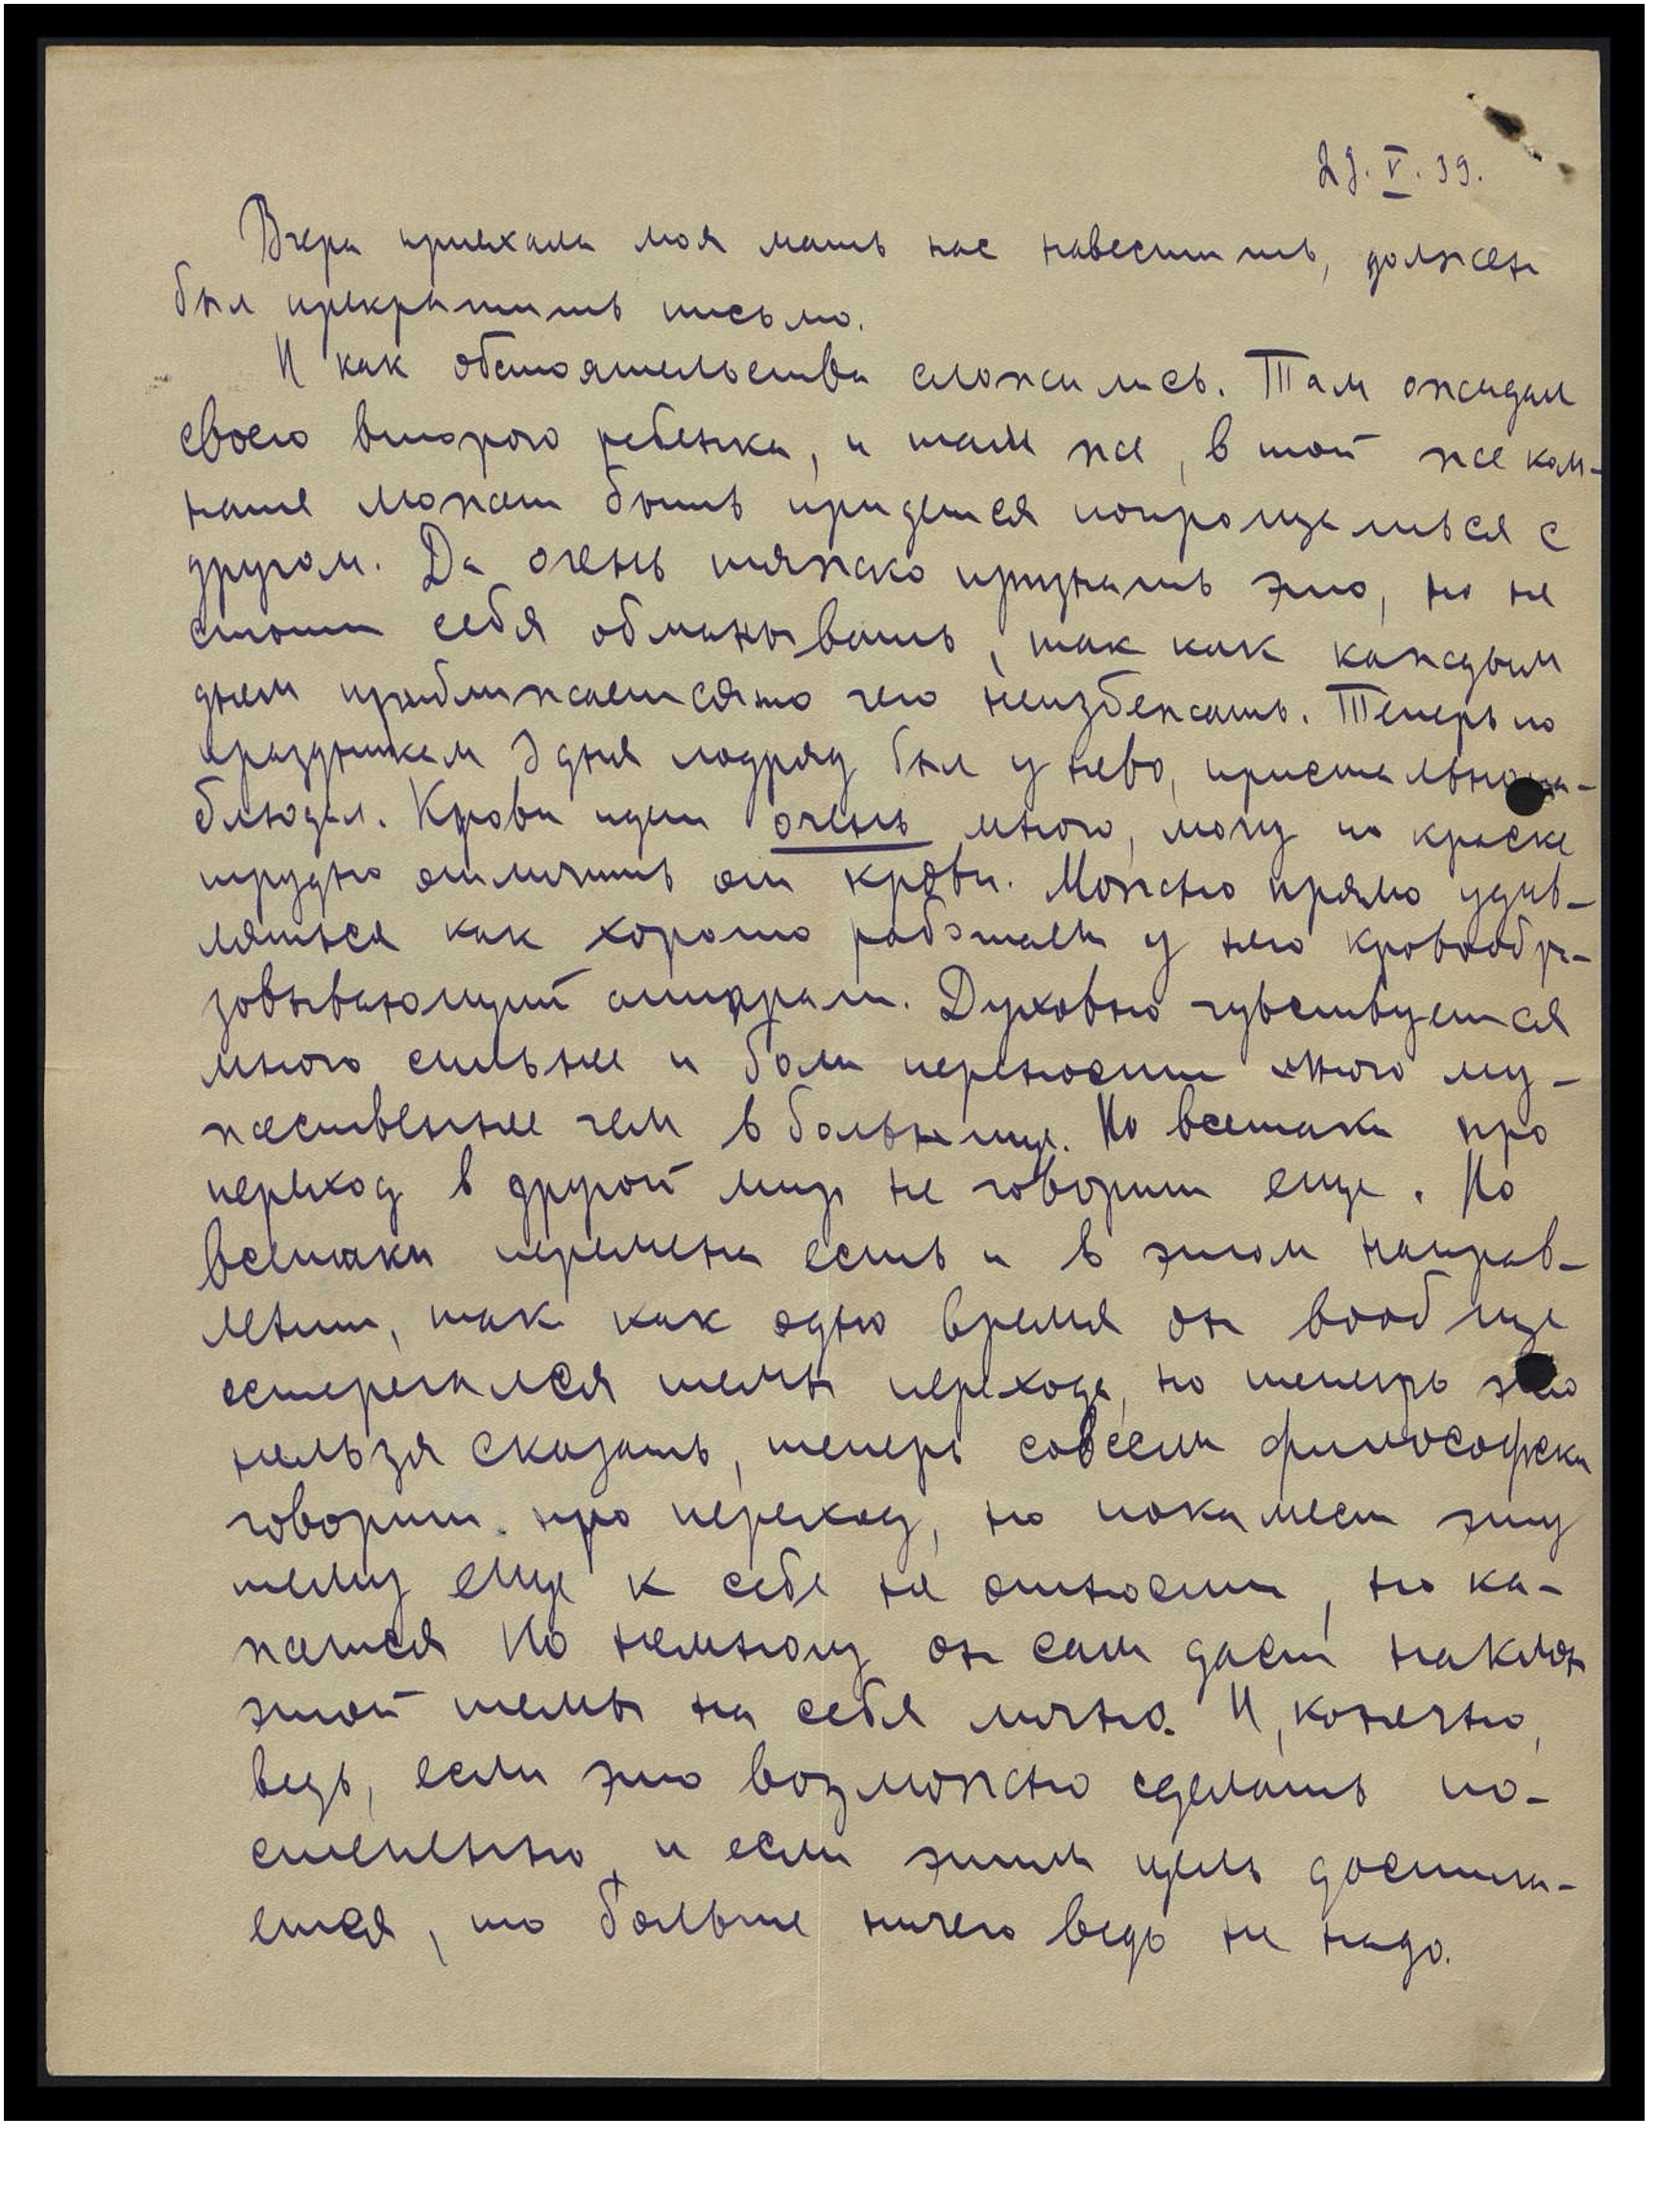 29. V. 39.
Вчера приехала моя мать нас навестить, должен
был прекратить письмо.
И как обстоятельства сложились. Там ожидал
своего второго ребенка, и там же, в той же ком-
нате может быть придется попрощаться с
другом. Да очень тяжко признать это, но не
стоит себя обманывать, так как каждым
днем приближается то чего неизбежать. Теперь по
праздникам 3 дня подряд был у нево, пристально на-
блюдал. Крови идет очень много, мочу по краске
трудно отличить от крови. Можно прямо удив-
ляться как хорошо работает у него кровообра-
зовывающий аппарат. Духовно чувствуется
много сильнее и боли переносит много му-
жественнее чем в больнице. Но всетаки про
переход в другой мир не говорит еще. Но
всетаки перемена есть и в этом направ-
лении, так как одно время он вообще
остерегался темы перехода, но теперь это
нельзя сказать, теперь совсем философски
говорит про переход, но покамест эту
тему еще к себе не относит, но ка-
жется по немногу он сам дает наклон
этой темы на себя лично. И, конечно,
ведь, если это возможно сделать по-
степенно, и если этим цель достига-
ется, то больше ничего ведь не надо.